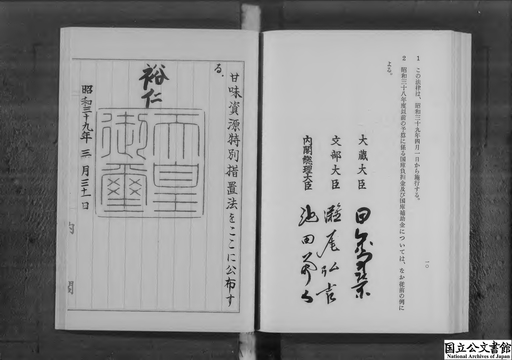 1 この法律は、昭和三十九年四月一日から施行する。
2 昭和三十八年度以前の予算に係る国庫負担金及び国庫補助金については、なお従前の例に
よる。
一〇
大蔵大臣 田中角栄
文部大臣 灘尾弘吉
内閣総理大臣 池田勇人
甘味資源特別措置法をここに公布す
る。
裕仁
天皇
御璽
昭和三十九年三月三十一日
内閣
国立公文書館
National Archives of Japan